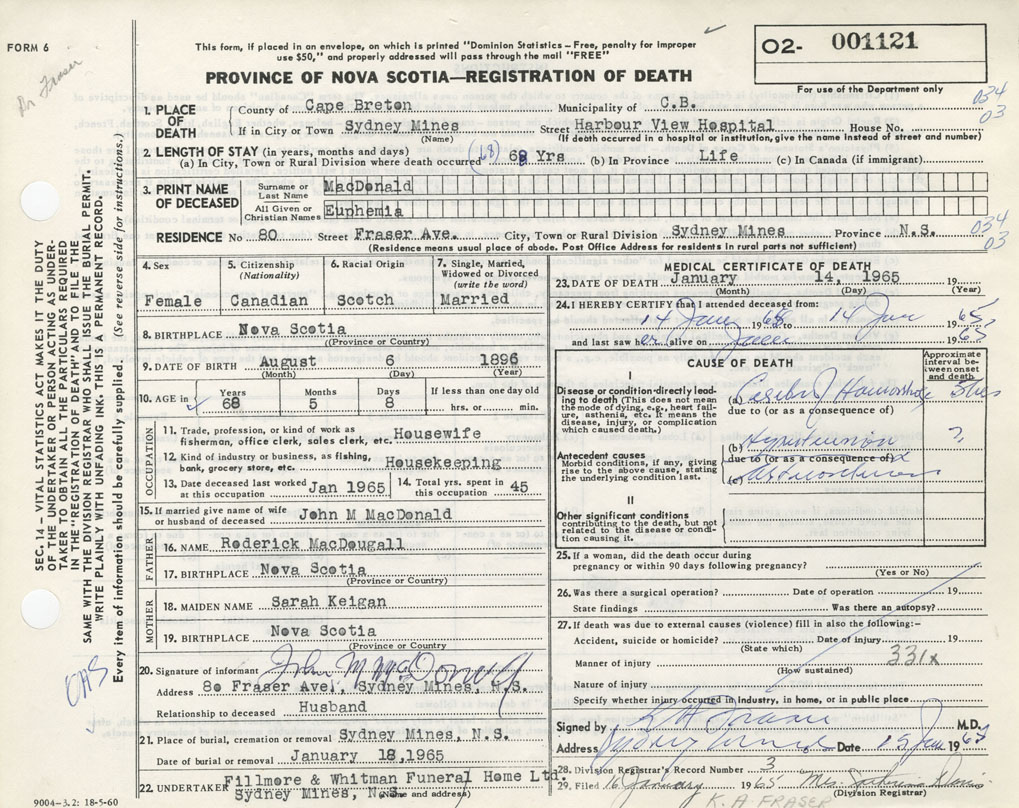 FORM 6
Dr Fraser
This form, if placed in an envelope, on which is printed "Dominion Statistics – Free, penalty for improper
use $50," and properly addressed will pass through the mail "FREE"
PROVINCE OF NOVA SCOTIA—REGISTRATION OF DEATH
O2- 001121
For use of the Department only
SEC. 14 – VITAL STATISTICS ACT MAKES IT THE DUTY
OF THE UNDERTAKER OR PERSON ACTING AS UNDER-
TAKER TO OBTAIN ALL THE PARTICULARS REQUIRED
IN THE "REGISTRATION OF DEATH" AND TO FILE THE
SAME WITH THE DIVISION REGISTRAR WHO SHALL ISSUE THE BURIAL PERMIT.
WRITE PLAINLY WITH UNFADING INK. THIS IS A PERMANENT RECORD.
Every item of information should be carefully supplied. (See reverse side for instructions.)
OAS
1. PLACE OF DEATH
County of Cape Breton Municipality of C.B. 034
If in City or Town Sydney Mines Street Harbour View Hospital House No. 03
(Name) (If death occurred in a hospital or institution, give the name instead of street and number)
2. LENGTH OF STAY (in years, months and days)
(a) In City, Town or Rural Division where death occurred (68) 68 Yrs (b) In Province Life (c) In Canada (if immigrant)
3. PRINT NAME OF DECEASED
Surname or Last Name MacDonald
All Given or Christian Names Euphemia
RESIDENCE No 80 Street Fraser Ave. City, Town or Rural Division Sydney Mines Province N.S. 034 03
(Residence means usual place of abode. Post Office Address for residents in rural parts not sufficient)
4. Sex Female
5. Citizenship (Nationality) Canadian
6. Racial Origin Scotch
7. Single, Married, Widowed or Divorced (write the word) Married
8. BIRTHPLACE Nova Scotia
(Province or Country)
9. DATE OF BIRTH August 6 1896
(Month) (Day) (Year)
10. AGE in Years 68 Months 5 Days 8 If less than one day old hrs. or min.
OCCUPATION
11. Trade, profession, or kind of work as fisherman, office clerk, sales clerk, etc. Housewife
12. Kind of industry or business, as fishing, bank, grocery store, etc. Housekeeping
13. Date deceased last worked at this occupation Jan 1965
14. Total yrs. spent in this occupation 45
15. If married give name of wife or husband of deceased John M MacDonald
FATHER
16. NAME Roderick MacDougall
17. BIRTHPLACE Nova Scotia
(Province or Country)
MOTHER
18. MAIDEN NAME Sarah Keigan
19. BIRTHPLACE Nova Scotia
(Province or Country
20. Signature of informant John M MacDonald
Address 80 Fraser Ave., Sydney Mines, N.S.
Relationship to deceased Husband
21. Place of burial, cremation or removal Sydney Mines, N.S.
Date of burial or removal January 18,1965
22. UNDERTAKER Fillmore & Whitman Funeral Home Ltd.
Sydney Mines, N.S. (Name and address)
9004–3.2: 18-5-60
MEDICAL CERTIFICATE OF DEATH
23. DATE OF DEATH January 14, 1965 19
(Month) (Day) (Year)
24. I HEREBY CERTIFY that I attended deceased from:
14 Jan 1965 to 14 Jan 1965
and last saw her alive on 1965
CAUSE OF DEATH
Approximate interval between onset and death
I
Disease or condition directly leading to death (This does not mean the mode of dying, e.g., heart failure, asthenia, etc. It means the disease, injury, or complication which caused death.)
(a) Cerebral Hemorrhage 5 hrs
due to (or as a consequence of)
Antecedent causes
Morbid conditions, if any, giving rise to the above cause, stating the underlying condition last.
(b) Hypertension ?
due to (or as a consequence of)
(c)
II
Other significant conditions contributing to the death, but not related to the disease or condition causing it.
25. If a woman, did the death occur during pregnancy or within 90 days following pregnancy?
(Yes or No)
26. Was there a surgical operation? Date of operation 19
State findings Was there an autopsy?
27. If death was due to external causes (violence) fill in also the following:–
Accident, suicide or homicide? Date of injury 19
(State which)
Manner of injury 331x
(How sustained)
Nature of injury
Specify whether injury occurred in industry, in home, or in public place
Signed by K A Fraser M.D.
Address Sydney Mines Date 15 Jan 1965
28. Division Registrar's Record Number 3
29. Filed 16 January 1965 Mrs.
(Division Registrar)
K. A FRASER